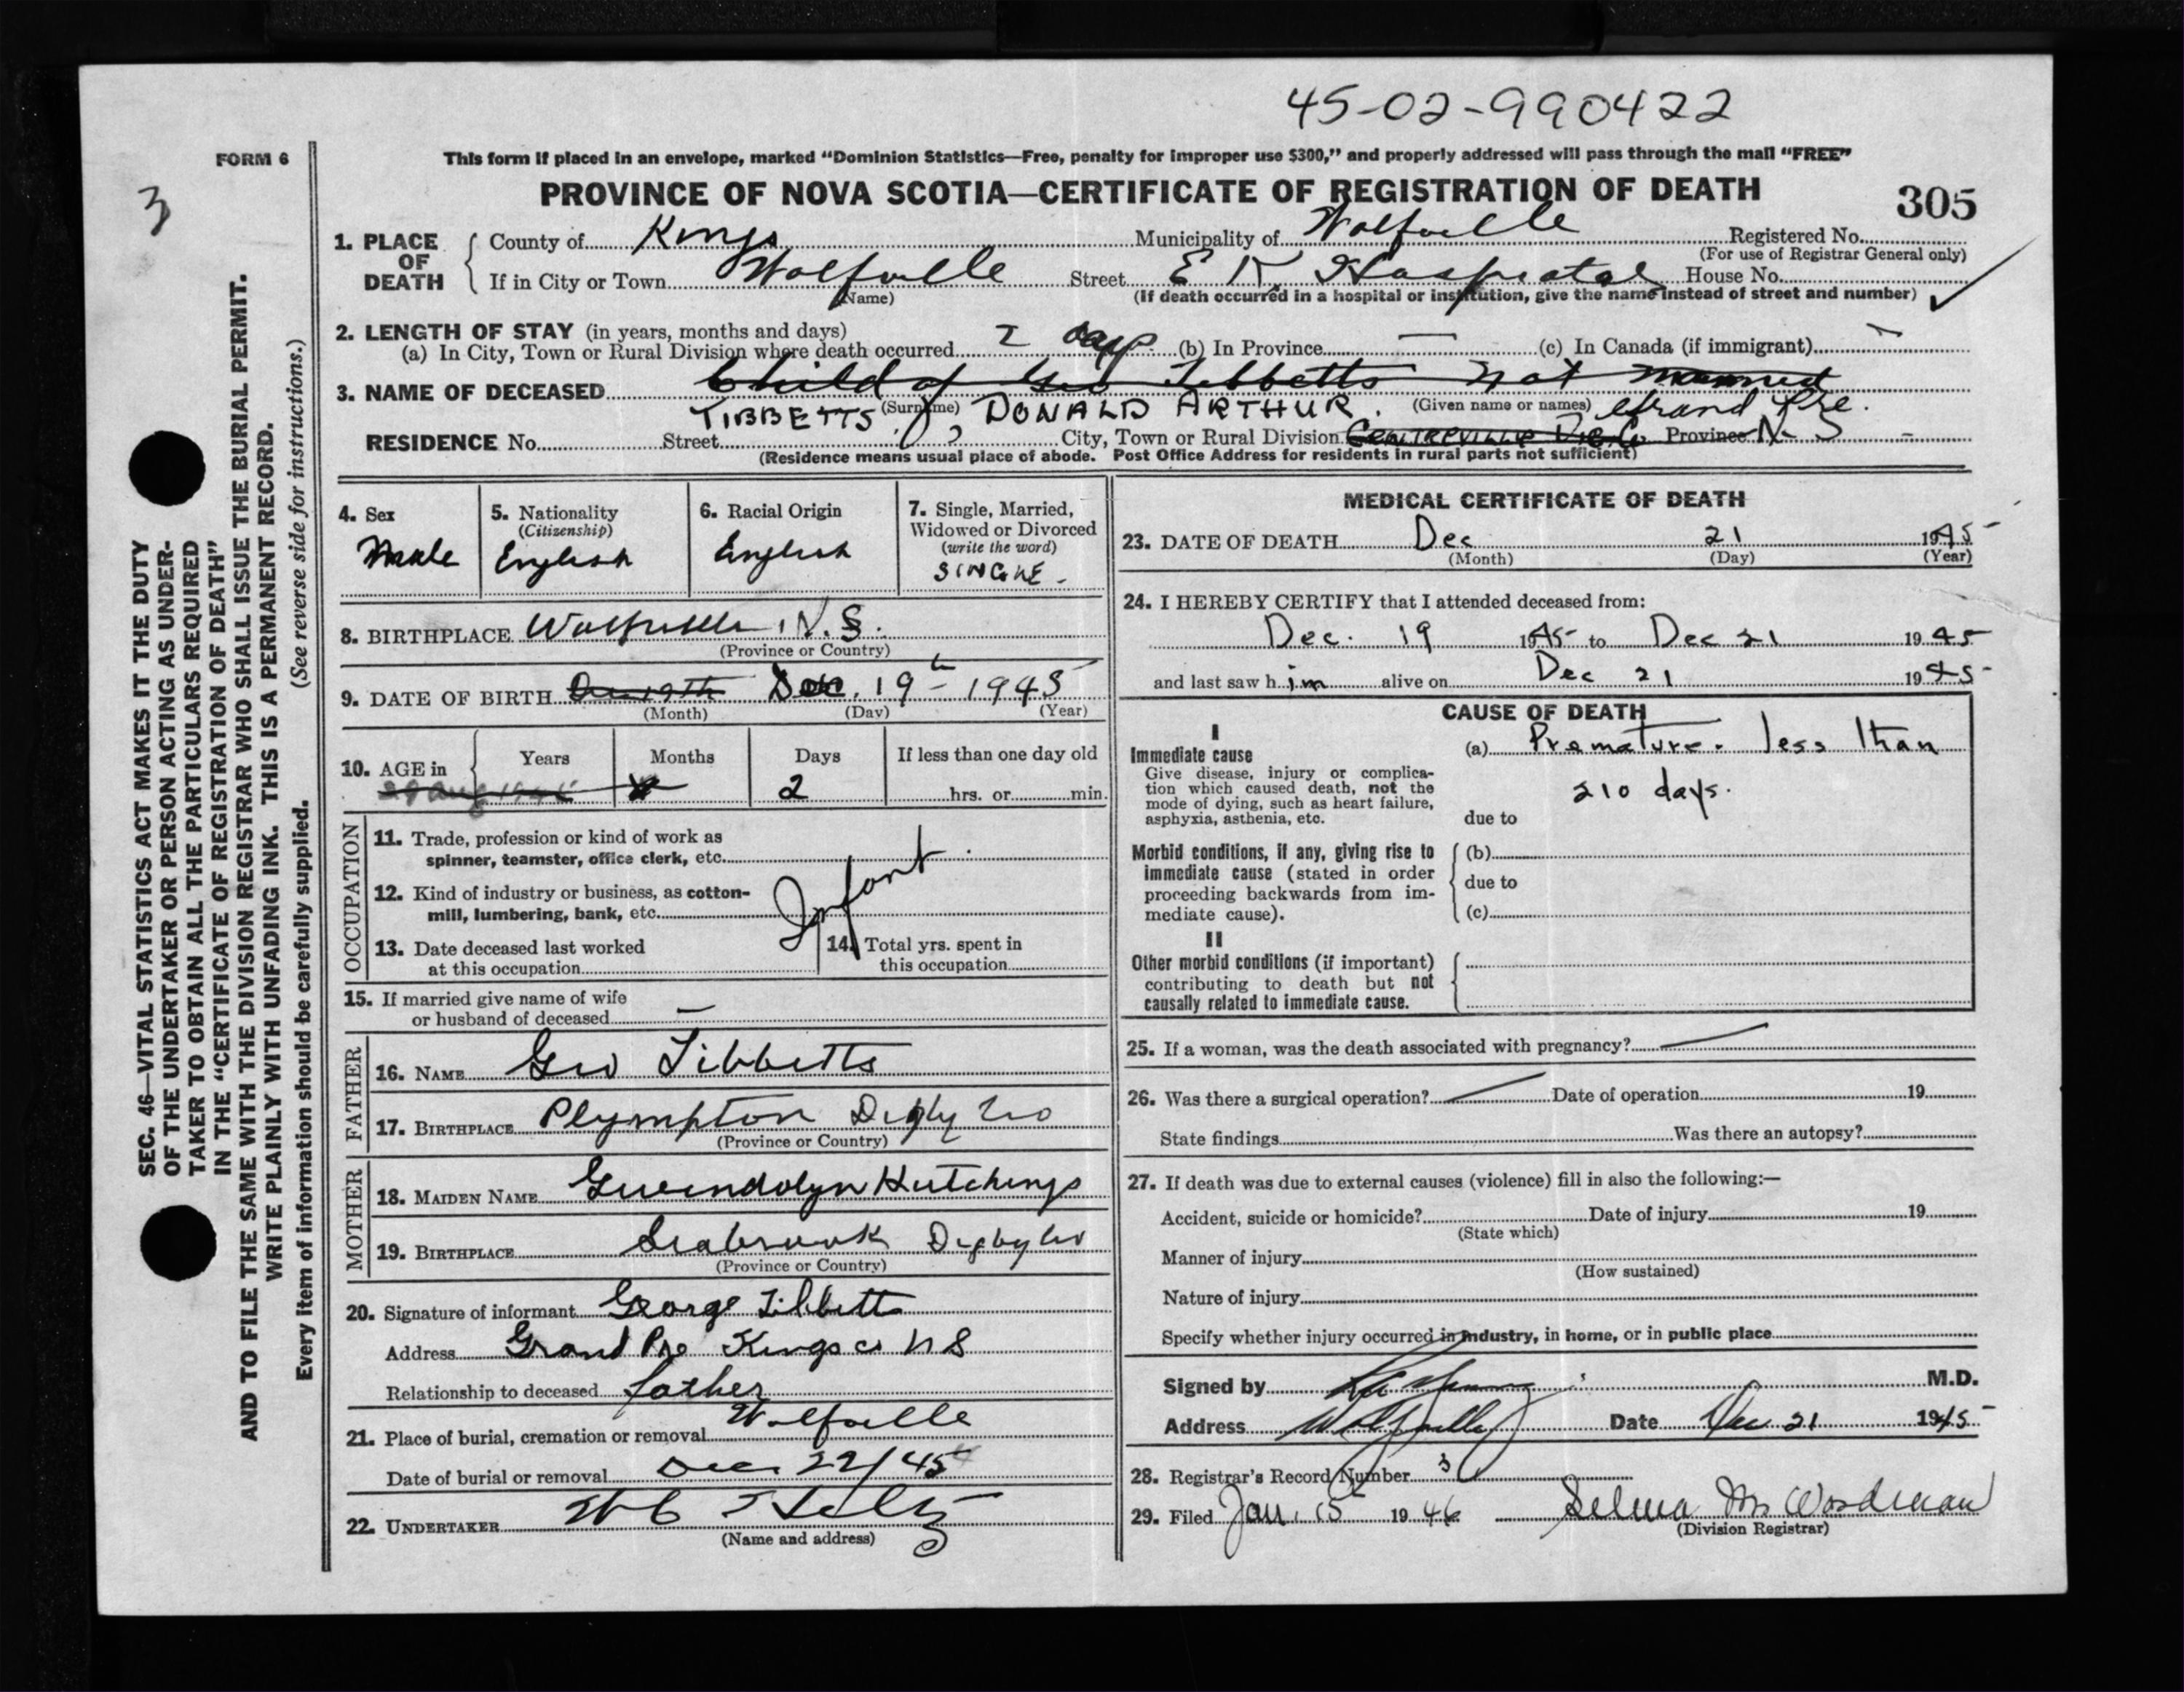 45-02-990422
FORM 6
This form if placed in an envelope, marked “Dominion Statistics—Free, penalty for improper use $300,” and properly addressed will pass through the mail “FREE”
3
PROVINCE OF NOVA SCOTIA—CERTIFICATE OF REGISTRATION OF DEATH
305
1. PLACE OF DEATH
County of Kings Municipality of Wolfville Registered No.
(For use of Registrar General only)
If in City or Town Wolfville Street E K Hospital House No.
(Name) (If death occurred in a hospital or institution, give the name instead of street and number)
2. LENGTH OF STAY (in years, months and days)
(a) In City, Town or Rural Division where death occurred 2 days (b) In Province — (c) In Canada (if immigrant)
3. NAME OF DECEASED Child of Geo Tibbetts not named
(Surname) (Given name or names)
TIBBETTS, DONALD ARTHUR. Grand Pre.
RESIDENCE No. Street City, Town or Rural Division Centreville Dig. Co Province N S
(Residence means usual place of abode. Post Office Address for residents in rural parts not sufficient)
4. Sex
Male
5. Nationality
(Citizenship)
English
6. Racial Origin
English
7. Single, Married,
Widowed or Divorced
(write the word)
SINGLE -
8. BIRTHPLACE Wolfville, N.S.
(Province or Country)
9. DATE OF BIRTH Dec. 19th 1945
(Month) (Day) (Year)
10. AGE in
Years Months Days If less than one day old
2 hrs. or min.
OCCUPATION
11. Trade, profession or kind of work as
spinner, teamster, office clerk, etc.
Infant.
12. Kind of industry or business, as cotton-
mill, lumbering, bank, etc.
13. Date deceased last worked
at this occupation
14. Total yrs. spent in
this occupation
15. If married give name of wife
or husband of deceased —
FATHER
16. NAME Geo Tibbetts
17. BIRTHPLACE Plympton Digby Co
(Province or Country)
MOTHER
18. MAIDEN NAME Gwendolyn Hutchings
19. BIRTHPLACE Seabrook Digby Co
(Province or Country)
20. Signature of informant George Tibbetts
Address Grand Pre Kings co N S
Relationship to deceased father
21. Place of burial, cremation or removal Wolfville
Date of burial or removal Dec 22/45
22. UNDERTAKER
(Name and address)
MEDICAL CERTIFICATE OF DEATH
23. DATE OF DEATH Dec 21 1945
(Month) (Day) (Year)
24. I HEREBY CERTIFY that I attended deceased from:
Dec. 19 1945 to Dec 21 1945
and last saw him alive on Dec 21 1945
CAUSE OF DEATH
I
Immediate cause (a) Premature. less than
Give disease, injury or complica-
tion which caused death, not the
mode of dying, such as heart failure,
asphyxia, asthenia, etc.
210 days.
due to
Morbid conditions, if any, giving rise to
immediate cause (stated in order
proceeding backwards from im-
mediate cause).
(b)
due to
(c)
II
Other morbid conditions (if important)
contributing to death but not
causally related to immediate cause.
25. If a woman, was the death associated with pregnancy? —
26. Was there a surgical operation? — Date of operation 19
State findings Was there an autopsy?
27. If death was due to external causes (violence) fill in also the following:—
Accident, suicide or homicide? Date of injury 19
(State which)
Manner of injury
(How sustained)
Nature of injury
Specify whether injury occurred in industry, in home, or in public place
Signed by M.D.
Address Wolfville Date Dec 21 1945
28. Registrar's Record Number 3
29. Filed Jan. 15 1946 Selma M Woodman
(Division Registrar)
SEC. 46—VITAL STATISTICS ACT MAKES IT THE DUTY
OF THE UNDERTAKER OR PERSON ACTING AS UNDER-
TAKER TO OBTAIN ALL THE PARTICULARS REQUIRED
IN THE “CERTIFICATE OF REGISTRATION OF DEATH”
AND TO FILE THE SAME WITH THE DIVISION REGISTRAR WHO SHALL ISSUE THE BURIAL PERMIT.
WRITE PLAINLY WITH UNFADING INK. THIS IS A PERMANENT RECORD.
Every item of information should be carefully supplied. (See reverse side for instructions.)